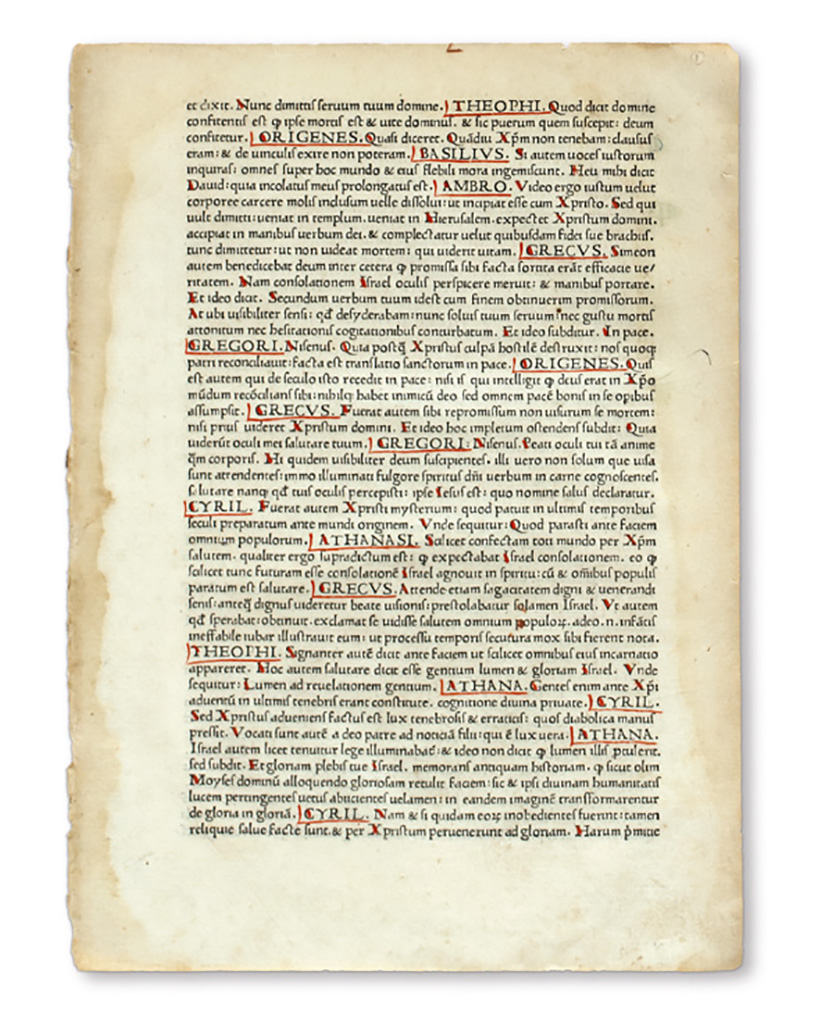 et dixit. Nunc dimittis seruum tuum domine. THEOPHI. Quod dicit domine
confitentis est ꝙ ipse mortis est & uite dominus. & sic puerum quem suscepit: deum
confitetur. ORIGENES. Quasi diceret. Quādiu Xp̄m non tenebam: clausus
eram: & de uinculis exire non poteram. BASILIVS. Si autem uoces iustorum
inquiras: omnes super hoc mundo & eius flebili mora ingemiscunt. Heu mihi dicit
Dauid: quia incolatus meus prolongatus est. AMBRO. Video ergo iustum uelut
corporee carcere molis inclusum uelle dissolui: ut incipiat esse cum Xpristo. Sed qui
uult dimitti: ueniat in templum. ueniat in Hierusalem. expectet Xpristum domini.
accipiat in manibus uerbum dei. & complectatur uelut quibusdam fidei sue brachiis.
tunc dimittetur: ut non uideat mortem: qui uiderit uitam. GRECVS. Simeon
autem benedicebat deum inter cetera ꝙ promissa sibi facta sortita erāt efficacie ue/
ritatem. Nam consolationem Israel oculis perspicere meruit: & manibus portare.
Et ideo dicit. Secundum uerbum tuum idest cum finem obtinuerim promissorum.
At ubi uisibiliter sensi: qd̄ desyderabam: nunc soluis tuum seruum: nec gustu mortis
attonitum nec hesitationis cogitationibus conturbatum. Et ideo subditur. In pace.
GREGORI. Nisenus. Quia postq̄ Xpristus culpā hostilē destruxit: nos quoq;
patri reconciliauit: facta est translatio sanctorum in pace. ORIGENES. Quis
est autem qui de seculo isto recedit in pace: nisi is qui intelligit ꝙ deus erat in Xp̄o
mūdum recōcilians sibi: nihilq; habet inimicū deo sed omnem pacē bonis in se opibus
assumpsit. GRECVS. Fuerat autem sibi repromissum non uisurum se mortem:
nisi prius uideret Xpristum domini. Et ideo hoc impletum ostendens subdit: Quia
uiderūt oculi mei salutare tuum. GREGORI: Nisenus. Beati oculi tui tā anime
q̄m corporis. Hi quidem uisibiliter deum suscipientes. illi uero non solum que uisa
sunt attendentes: immo illuminati fulgore spiritus dn̄i uerbum in carne cognoscentes.
salutare nanq; qd̄ tuis oculis percepisti: ipse Iesus est: quo nomine salus declaratur.
CYRIL. Fuerat autem Xpristi mysterium: quod patuit in ultimis temporibus
seculi preparatum ante mundi originem. Vnde sequitur: Quod parasti ante faciem
omnium populorum. ATHANASI. Scilicet confectam toti mundo per Xp̄m
salutem. qualiter ergo supradictum est: ꝙ expectabat Israel consolationem. eo ꝙ
scilicet tunc futuram esse consolationē Israel agnouit in spiritu: cū & om̄ibus populis
paratum est salutare. GRECVS. Attende etiam sagacitatem digni & uenerandi
senis: anteq̄ dignus uideretur beate uisionis: prestolabatur solamen Israel. Vt autem
qd̄ sperabat: obtinuit. exclamat se uidisse salutem omnium populoꝝ. adeo. n. infātis
ineffabile iubar illustrauit eum: ut processu temporis secutura mox sibi fierent nota.
THEOPHI. Signanter autē dicit ante faciem ut scilicet omnibus eius incarnatio
appareret. Hoc autem salutare dicit esse gentium lumen & gloriam Israel. Vnde
sequitur: Lumen ad reuelationem gentium. ATHANA. Gentes enim ante Xp̄i
aduentū in ultimis tenebris erant constitute. cognitione diuina priuate. CYRIL.
Sed Xpristus adueniens factus est lux tenebrosis & erraticis: quos diabolica manus
pressit. Vocati sunt autē a deo patre ad noticiā filii: qui ē lux uera. ATHANA.
Israel autem licet tenuiter lege illuminabat̄: & ideo non dicit ꝙ lumen illis
sed subdit. Et gloriam plebis tue Israel. memorans antiquam historiam. ꝙ sicut olim
Moyses dominū alloquendo gloriosam retulit faciem: sic & ipsi diuinam humanitatis
lucem pertingentes uetus abiicientes uelamen: in eandem imaginē transformarentur
de gloria in gloriā. CYRIL. Nam & si quidam eoꝝ inobedientes fuerint: tamen
reliquie salue facte sunt. & per Xpristum peruenerunt ad gloriam. Harum p̄mitie